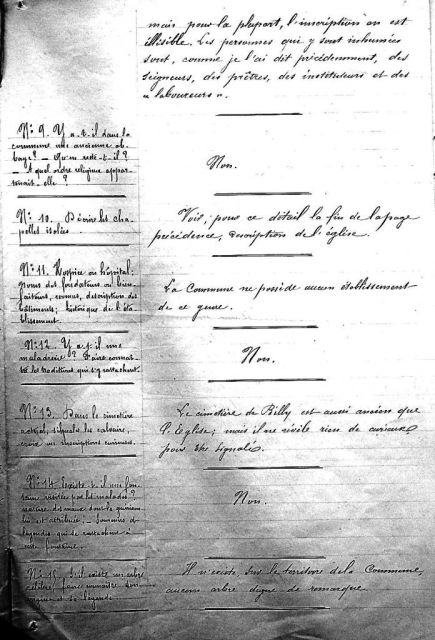 mais pour la plupart, l'inscription en est
illisible. Les personnes qui y sont inhumées
sont, comme je l'ai dit précédemment, des
seigneurs, des prêtres, des instituteurs et des
« laboureurs ».
N° 9. Y a-t-il dans la
commune une ancienne ab-
baye? — Qu'en reste-t-il?
— A quel ordre religieux appar-
tenait-elle?
Non.
N° 10. Décrire les cha-
pelles isolées.
Voir, pour ce détail la fin de la page
précédence, description de l'église.
N° 11. Hospice ou hôpital;
noms des fondateurs ou bien-
faiteurs, connus, description des
bâtiments; historique de l'éta-
blissement.
La Commune ne possède aucun établissement
de ce genre.
N° 12. Y a-t-il une
maladrerie? Faire connaî-
tre les traditions qui s'y rattachent.
Non.
N° 13. Dans le cimetière
actuel, signaler les calvaires,
croix ou inscriptions curieuses.
Le cimetière de Billy est aussi ancien que
l'Eglise; mais il ne révèle rien de curieux
pour être signalé.
N° 14. Existe-t-il une fon-
taine visitée par les malades?
nature des maux dont la guérison
lui est attribuée. — Souvenirs ou
légendes qui se rattachent à
cette fontaine.
Non.
N° 15. S'il existe un arbre
célèbre, faire connaître son
origine et sa légende.
Il n'existe, sur le territoire de la Commune,
aucun arbre digne de remarque.